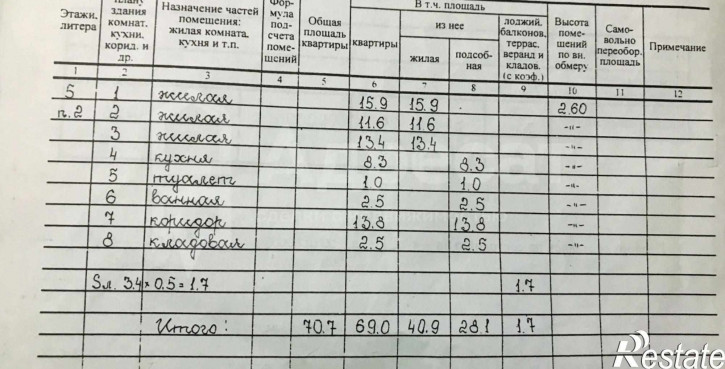 Этажи, литера | плану здания комнат. кухни. корид. и др. | Назначение частей помещения: жилая комната. кухня и т.п. | Фор- мула под- счета поме- щений | Общая площадь квартиры | В т.ч. площадь | квартиры | из нее | жилая | подсоб- ная | лоджий. балконов, террас. веранд и кладов. (с коэф.) | Высота поме- щений по вн. обмеру | Само- вольно переобор. площадь | Примечание
1 | 2 | 3 | 4 | 5 | 6 | 7 | 8 | 9 | 10 | 11 | 12
5 | 1 | жилая | 15.9 | 15.9 | 2.60
п.2 | 2 | жилая | 11.6 | 11.6 | -"-
3 | жилая | 13.4 | 13.4 | -"-
4 | кухня | 8.3 | 8.3 | -"-
5 | туалет | 1.0 | 1.0 | -"-
6 | ванная | 2.5 | 2.5 | -"-
7 | коридор | 13.8 | 13.8 | -"-
8 | кладовая | 2.5 | 2.5 | -"-
Sл. 3.4 × 0.5 = 1.7 | 1.7
Итого: | 70.7 | 69.0 | 40.9 | 28.1 | 1.7
Restate